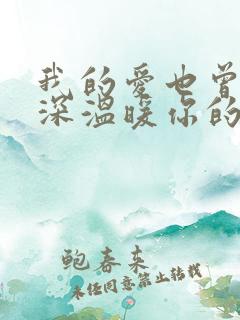 我的爱也曾
深温暖你的
鲍春来
未经同意禁止转载